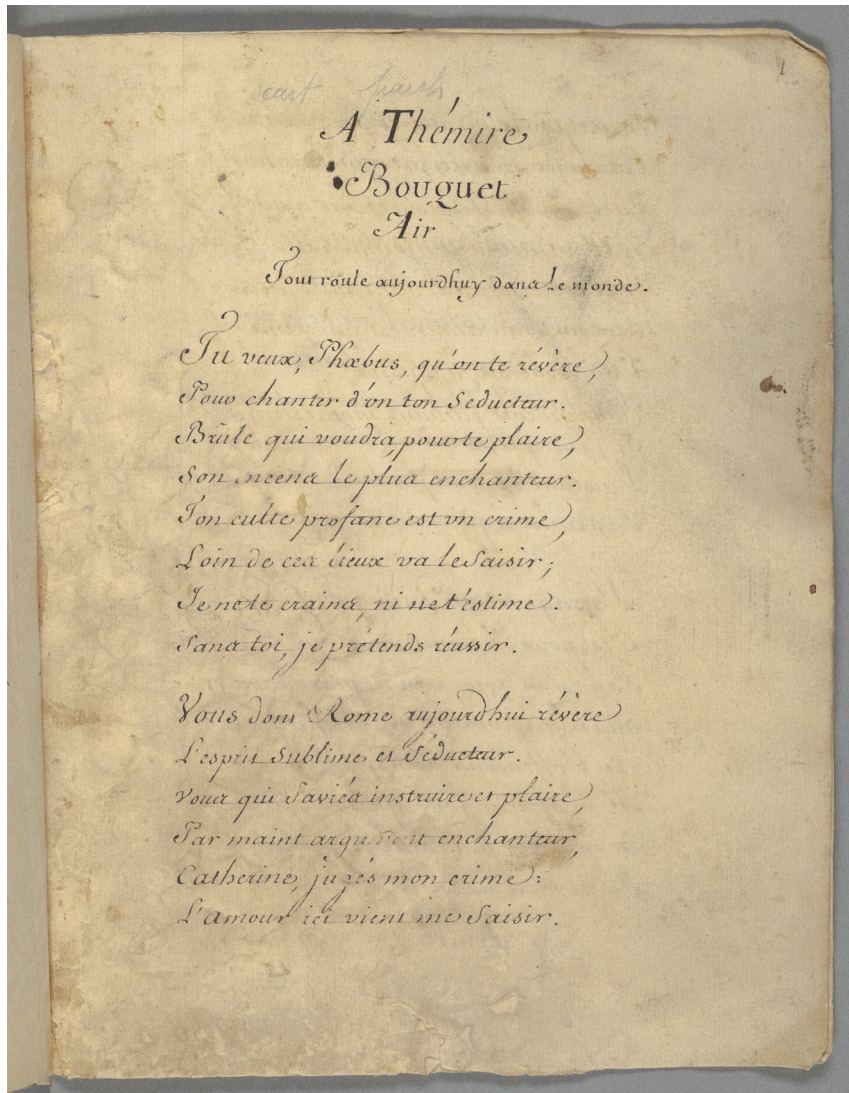 1
A Thémire
Bouquet
Air
Tout roule aujourdhuy dans Le monde.
Tu veux, Phœbus, qu'on te révère,
Pour chanter d'on ton Seducteur.
Brûle qui voudra, pour te plaire,
Son encens le plus enchanteur.
Ton culte profane est vn crime,
Loin de ces lieux va le Saisir;
Je ne te crains, ni ne t'éstime.
Sans toi, je prétends réussir.
Vous dont Rome aujourdhui révère
L'esprit Sublime et Séducteur.
Vous qui Saviés instruire et plaire,
Par maint argument enchanteur,
Catherine, jugés mon crime:
L'Amour ici vient me Saisir.